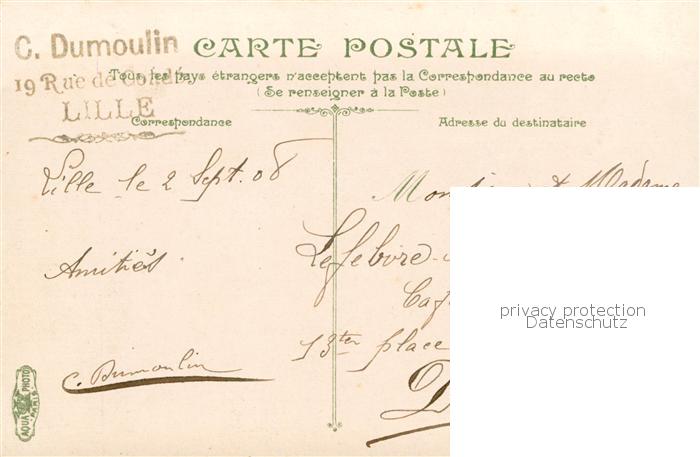 C. Dumoulin
19 Rue de Condé
LILLE
CARTE POSTALE
Tous les pays étrangers n'acceptent pas la Correspondance au recto
(Se renseigner à la Poste)
Correspondance
Adresse du destinataire
Lille le 2 Sept. 08
Amitiés
C. Dumoulin
Madame
Lefebvre
13ter place
AQUA PHOTO
PARIS
privacy protection
Datenschutz